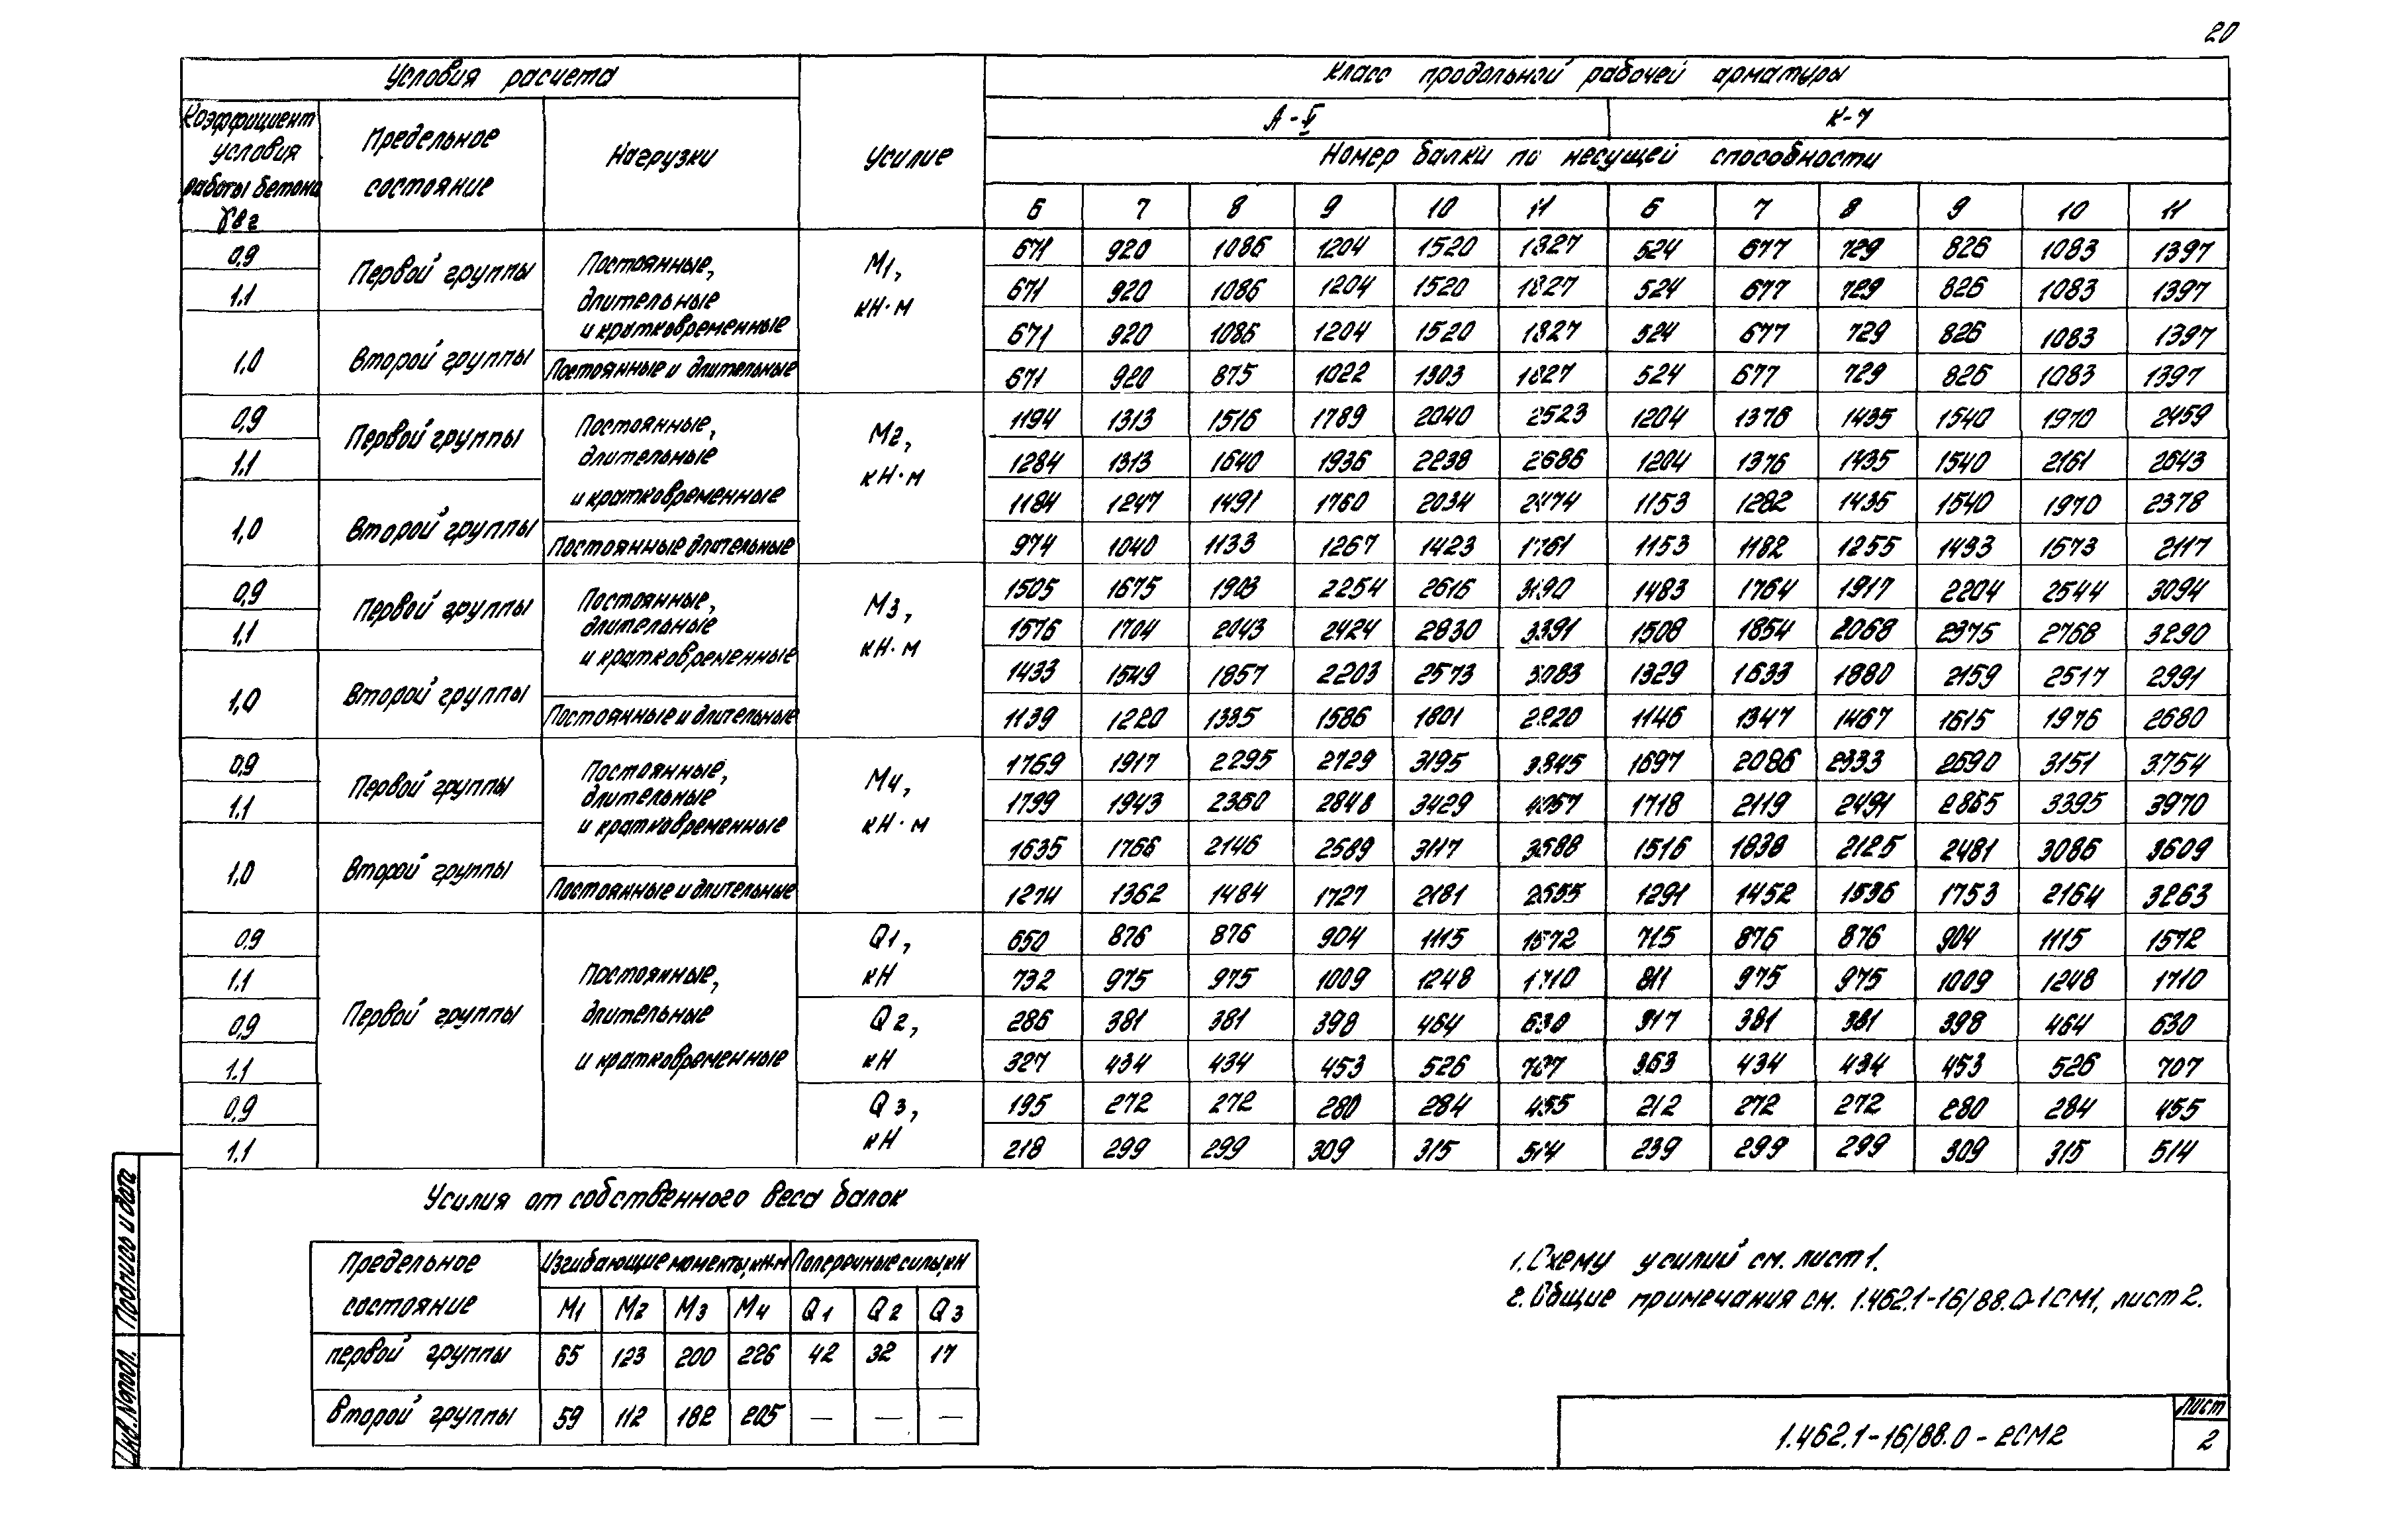 20
Условия расчета
Класс продольной рабочей арматуры
Коэффициент условия работы бетона γв2
Предельное состояние
Нагрузки
Усилие
А-V К-7
Номер балки по несущей способности
6 7 8 9 10 11 6 7 8 9 10 11
0,9 Первой группы Постоянные, длительные и кратковременные М1, кН·м 671 920 1086 1204 1520 1827 524 677 729 826 1083 1397
1.1 671 920 1086 1204 1520 1827 524 677 729 826 1083 1397
1,0 Второй группы 671 920 1086 1204 1520 1827 524 677 729 826 1083 1397
Постоянные и длительные 671 920 875 1022 1303 1827 524 677 729 826 1083 1397
0,9 Первой группы Постоянные, длительные и кратковременные М2, кН·м 1194 1313 1516 1789 2040 2523 1204 1376 1435 1540 1970 2459
1.1 1284 1313 1640 1936 2238 2686 1204 1376 1435 1540 2161 2643
1,0 Второй группы 1184 1247 1491 1760 2034 2474 1153 1282 1435 1540 1970 2378
Постоянные длительные 974 1040 1133 1267 1423 1761 1153 1182 1255 1433 1573 2117
0,9 Первой группы Постоянные, длительные и кратковременные М3, кН·м 1505 1675 1903 2254 2616 3190 1483 1764 1917 2204 2544 3094
1,1 1576 1704 2043 2424 2830 3391 1508 1854 2068 2375 2768 3290
1,0 Второй группы 1433 1549 1857 2203 2573 3083 1329 1633 1880 2159 2517 2991
Постоянные и длительные 1139 1220 1335 1586 1801 2220 1146 1347 1467 1615 1976 2680
0,9 Первой группы Постоянные, длительные и кратковременные М4, кН·м 1769 1917 2295 2729 3195 3845 1697 2086 2333 2690 3151 3754
1.1 1799 1943 2360 2848 3429 4057 1718 2119 2491 2865 3395 3970
1,0 Второй группы 1635 1766 2146 2589 3117 3688 1516 1838 2125 2481 3086 3609
Постоянные и длительные 1274 1362 1484 1727 2181 2655 1291 1452 1536 1753 2164 3263
0,9 Первой группы Постоянные, длительные и кратковременные Q1, кН 650 876 876 904 1115 1572 715 876 876 904 1115 1572
1.1 732 975 975 1009 1248 1710 811 975 975 1009 1248 1710
0,9 Q2, кН 286 381 381 398 464 630 317 381 381 398 464 630
1.1 327 434 434 453 526 707 363 434 434 453 526 707
0,9 Q3, кН 195 272 272 280 284 455 212 272 272 280 284 455
1.1 218 299 299 309 315 514 239 299 299 309 315 514
Усилия от собственного веса балок
Предельное состояние Изгибающие моменты, кН·м Поперечные силы, кН
М1 М2 М3 М4 Q1 Q2 Q3
первой группы 65 123 200 226 42 32 17
второй группы 59 112 182 205 — — —
1. Схему усилий см. лист 1.
2. Общие примечания см. 1.462.1-16/88.0-1СМ1, лист 2.
Подпись и дата
Инв. № подл.
1.462.1-16/88.0-2СМ2
Лист
2